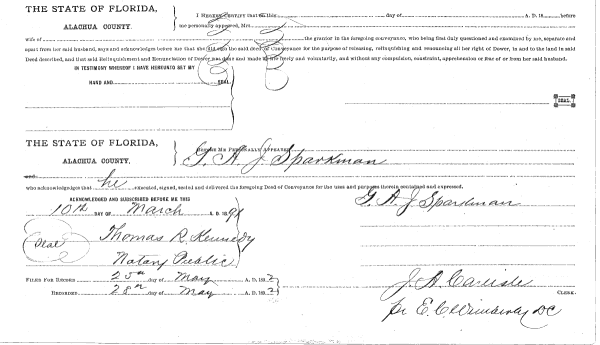 THE STATE OF FLORIDA,
ALACHUA COUNTY.
I HEREBY CERTIFY that on this day of A. D. 18 before
me personally appeared, Mrs.
wife of the grantor in the foregoing conveyance, who being first duly questioned and examined by me, separate and
apart from her said husband, says and acknowledges before me that she did sign the said deed of Conveyance for the purpose of releasing, relinquishing and renouncing all her right of Dower, in and to the land in said
Deed described, and that said Relinquishment and Renunciation of Dower was done and made by her freely and voluntarily, and without any compulsion, constraint, apprehension or fear of or from her said husband.
IN TESTIMONY WHEREOF I HAVE HEREUNTO SET MY
HAND AND SEAL
SEAL.
THE STATE OF FLORIDA,
ALACHUA COUNTY.
BEFORE ME PERSONALLY APPEARED
G. A. J. Sparkman
and
who acknowledges that he executed, signed, sealed and delivered the foregoing Deed of Conveyance for the uses and purposes therein contained and expressed.
ACKNOWLEDGED AND SUBSCRIBED BEFORE ME THIS
10th DAY OF March A. D. 189
G. A. J. Sparkman
Seal
Thomas R. Kennedy
Notary Public
FILED FOR RECORD 25th day of May A. D. 1892
RECORDED 28th day of May A. D. 1892
J. A. Carlisle CLERK.
Pr E. C. Wimberly DC